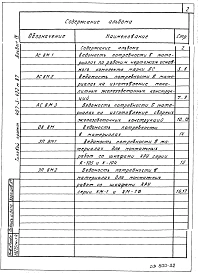 2
Содержание альбома
Обозначение
Наименование
Стр
Содержание альбома
2
АС ВМ 1
Ведомость потребности в мате-
риалах по рабочим чертежам основ-
ного комплекта марки АС
АС ВМ2
Ведомость потребности в мате-
риалах на изготовление моно-
литных железобетонных конструк-
ций
АС ВМ 3
Ведомость потребности в мате-
риалах на изготовление сборных
железобетонных конструкций
ОВ ВМ
Ведомость потребности
в материалах
14
ЭП ВМ1
Ведомость потребности в ма-
териалах для монтажных
работ со шкафами КРУ серии
К-103 и К-104
15
ЭП ВМ2
Ведомость потребности в
материалах для монтажных
работ со шкафами КРУ
16,17